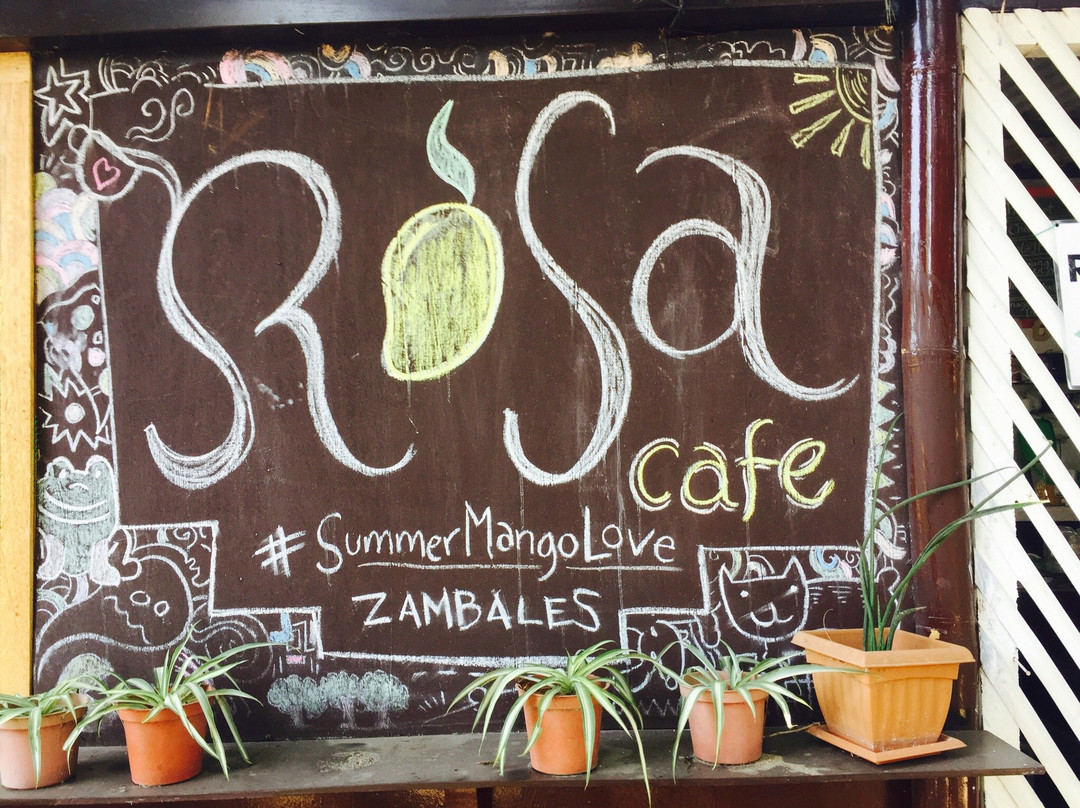 Rosa
cafe
#SummerMangoLove
ZAMBALES